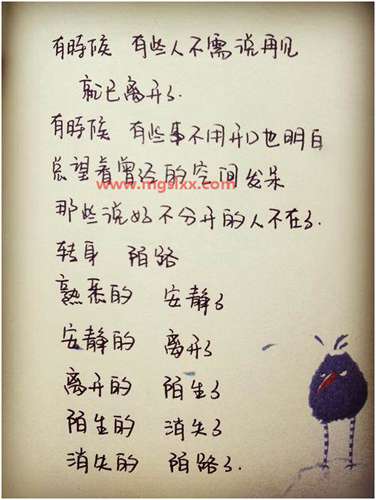 有時候 有些人不需说再见
就已离开了.
有時候 有些事不用开口也明白
总望着曾经的空间发呆
www.mgslxx.com
那些说好不分开的人不在了.
转身 陌路
熟悉的 安静了
安静的 离开了
离开的 陌生了
陌生的 消失了
消失的 陌路了.